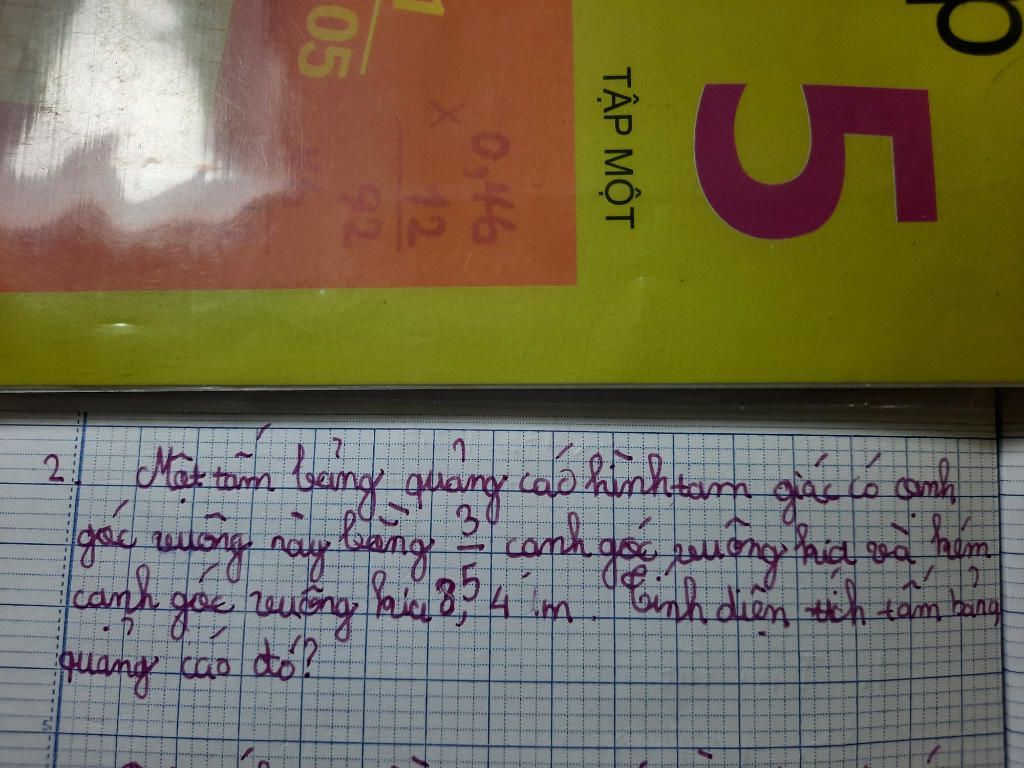 p
5
TẬP MỘT
05
0,46
×
12
92
2. Một tấm bảng quảng cáo hình tam giác có cạnh
góc vuông này bằng 3/5 cạnh góc vuông kia và kém
cạnh góc vuông kia 8,4 m. Tính diện tích tấm bảng
quảng cáo đó?